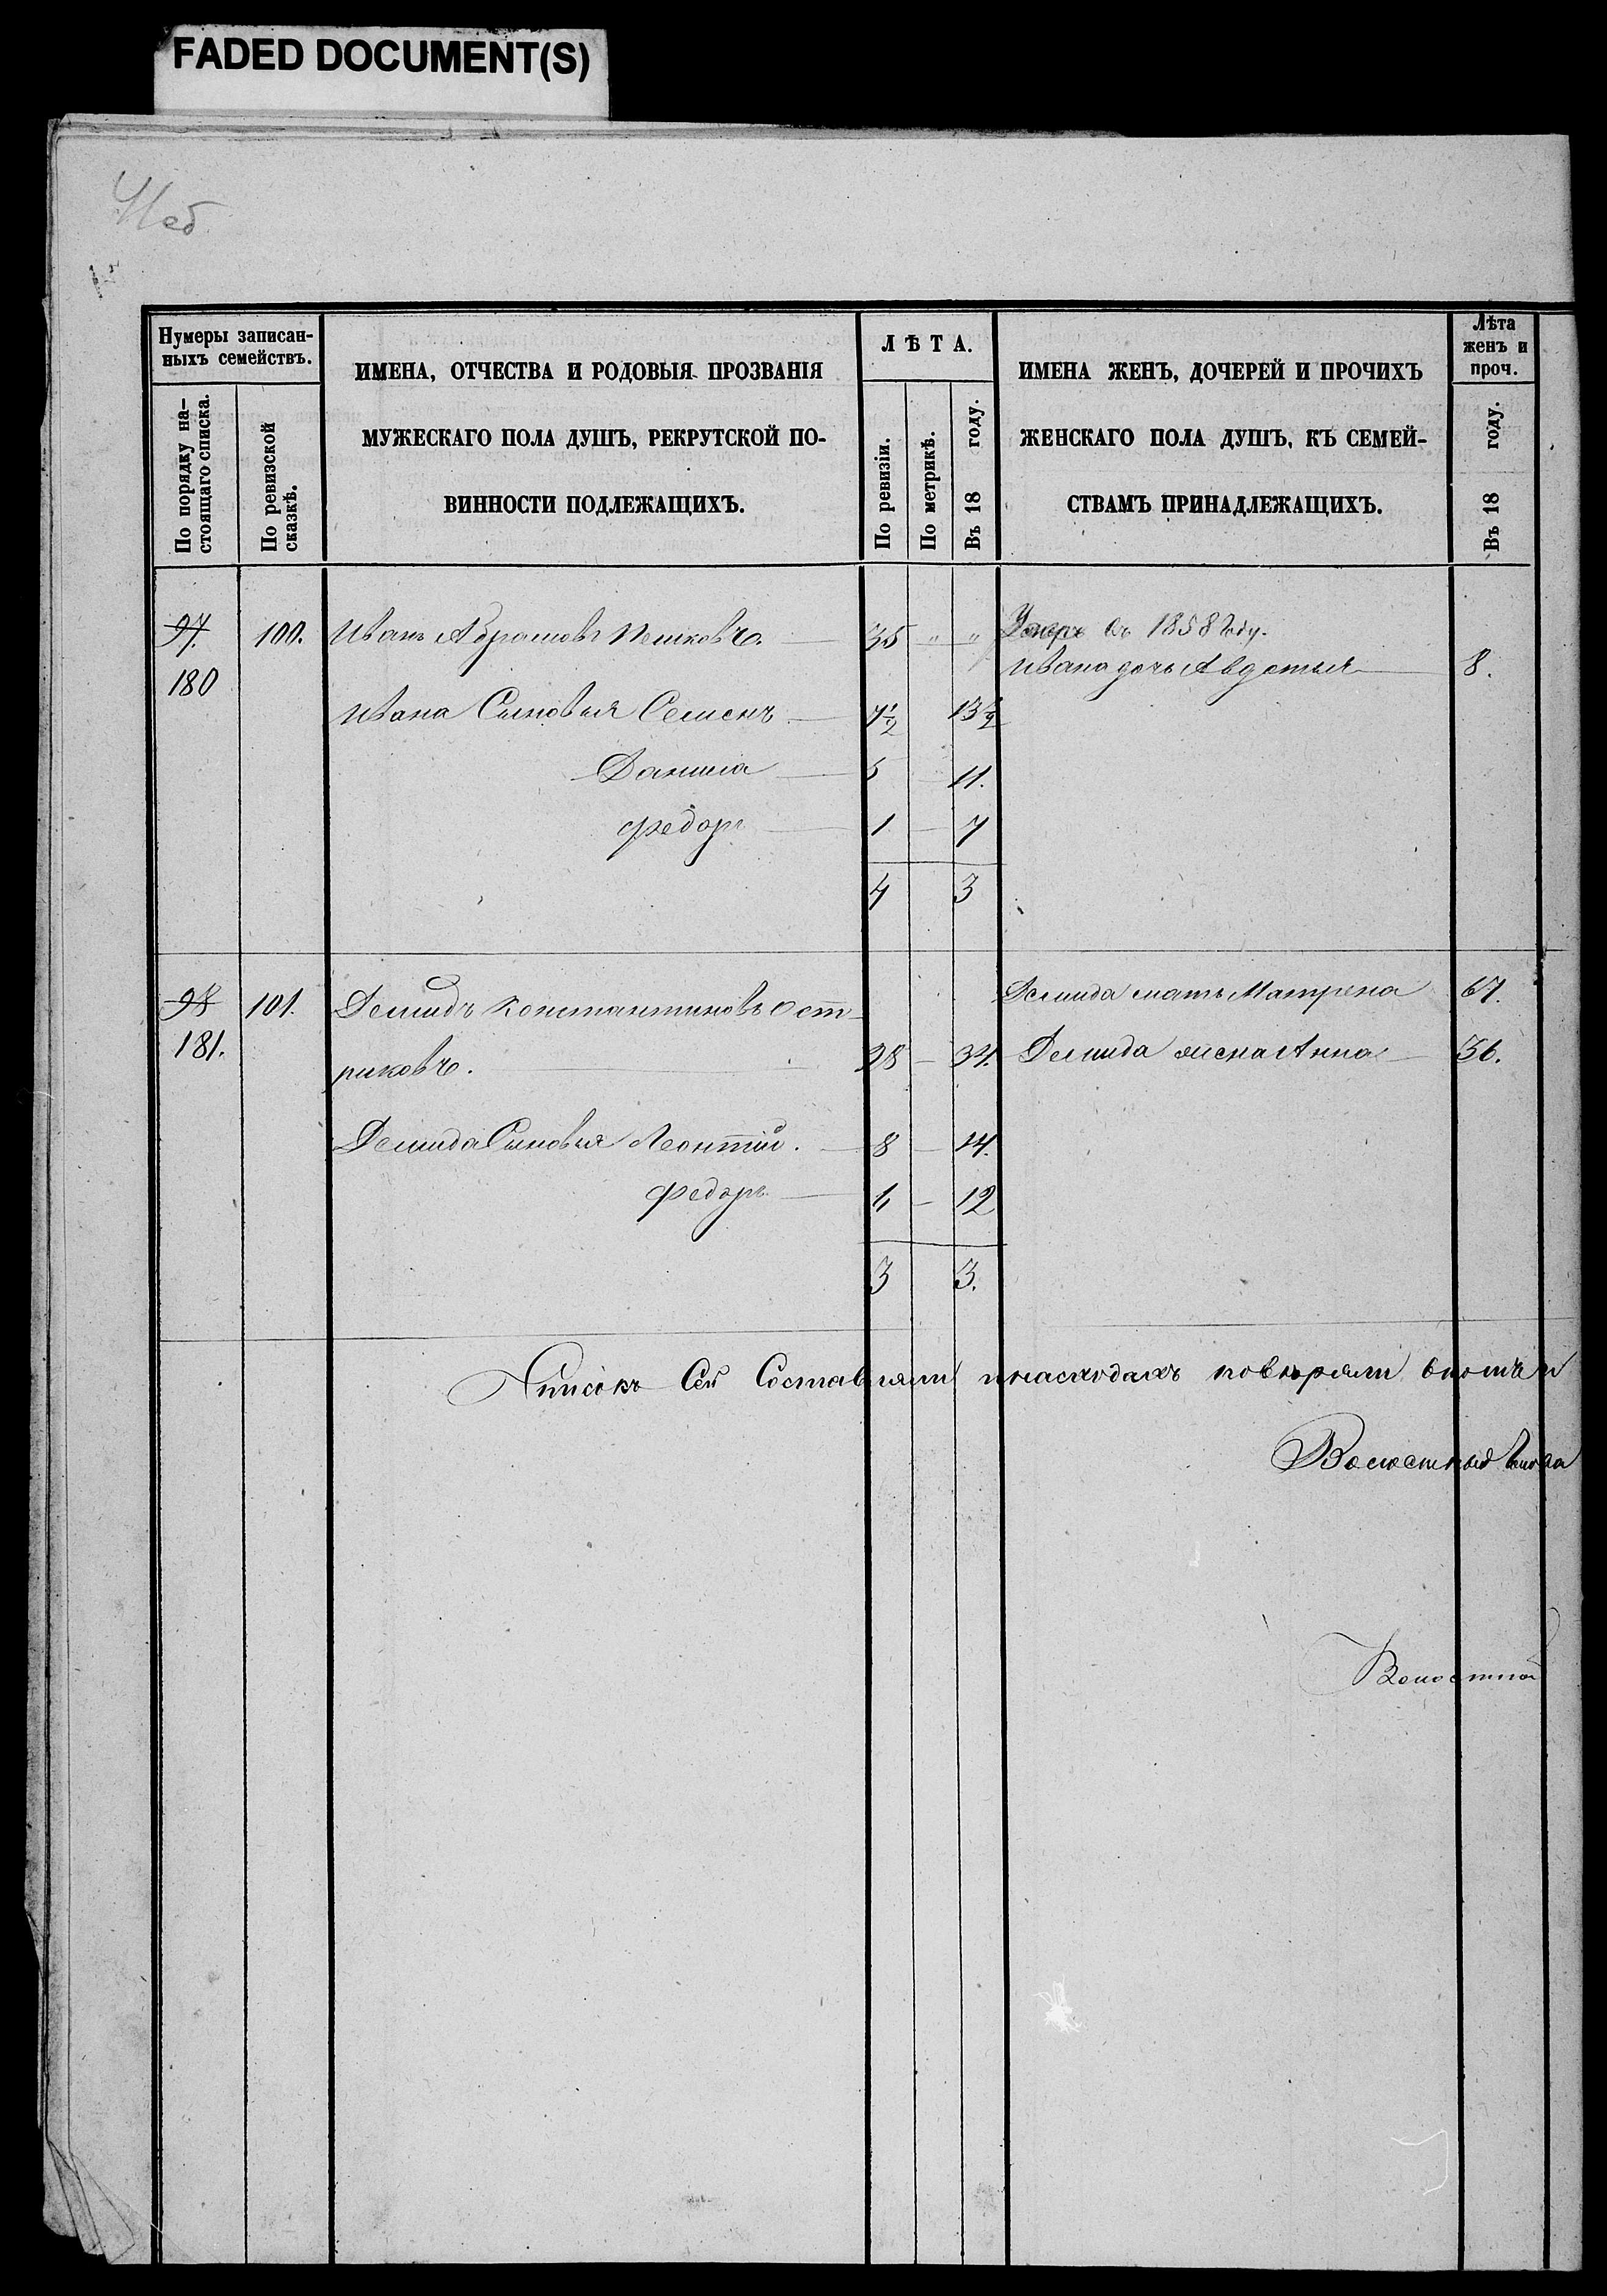 FADED DOCUMENT(S)
Нумеры записан-
ныхъ семействъ.
По порядку на-
стоящаго списка.
По ревизской
сказкѣ.
ИМЕНА, ОТЧЕСТВА И РОДОВЫЯ ПРОЗВАНІЯ
МУЖЕСКАГО ПОЛА ДУШЪ, РЕКРУТСКОЙ ПО-
ВИННОСТИ ПОДЛЕЖАЩИХЪ.
ЛѢТА.
По ревизіи.
По метрикѣ.
Въ 18 году.
ИМЕНА ЖЕНЪ, ДОЧЕРЕЙ И ПРОЧИХЪ
ЖЕНСКАГО ПОЛА ДУШЪ, КЪ СЕМЕЙ-
СТВАМЪ ПРИНАДЛЕЖАЩИХЪ.
Лѣта
женъ и
проч.
Въ 18 году.
97. 100. Иванъ Абрамовъ Пешковъ. 35 " " Умеръ въ 1858 году.
180 Ивана дочь Авдотья 8.
Ивана Сыновья Семенъ 7½ 13½
Данила 5 11.
Федоръ 1 7
4 3
98 101. Демидъ Константиновъ Ост- Демида мать Матрена 67.
181. риковъ. 28 34. Демида жена Анна 36.
Демида Сыновья Леонтій. 8 14.
Федоръ 12
3 3.
Список Сей Составляли и на сходахъ повѣряли в томъ и
Волостный
Волостной